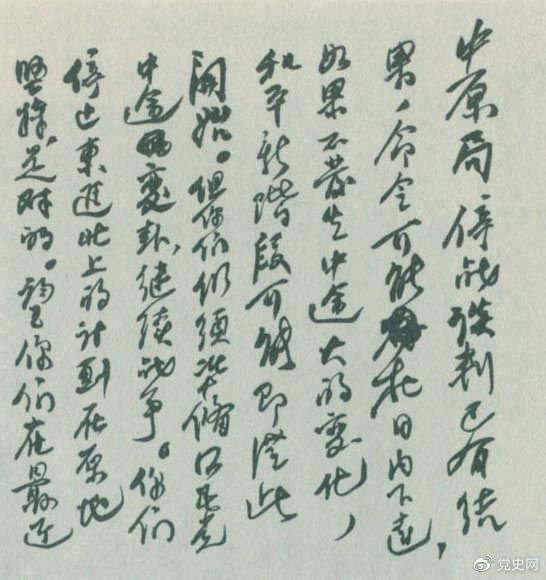 中原局 停战谈判已有结
果，命令可能於日内下达，
如果不發生中途大的变化，
和平新階段可能即從此
開始。但你们仍须準備国民党
中途變卦，继续战争。你们
停止東進北上的计划在原地
坚持，是对的。望你们在最近
党史网